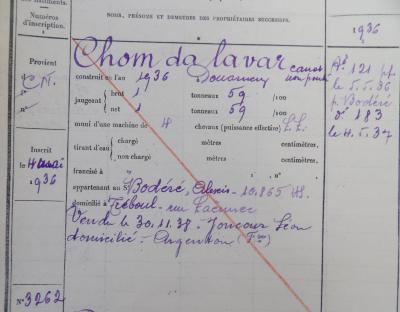 Numéros
d'inscription.
NOMS, PRÉNOMS ET DEMEURES DES PROPRIÉTAIRES SUCCESSIFS.
1936
Chom da lavar canot
non ponté
Provient
C.N.
N°
construit en l'an 1936 Douarnenez
jaugeant brut 1 tonneaux 59 /100
net 1 tonneaux 59 /100
muni d'une machine de 4 chevaux (puissance effective)
tirant d'eau chargé mètres centimètres.
non chargé mètres centimètres.
Inscrit
le 4 mai
1936
francisé à
appartenant au Sr Bodéré, Alexis - 10.865
domicilié à Tréboul - rue Laennec
Vendu le 30.11.38 - Joncour Léon
domicilié - Argenton (Fre)
N° 3262
A° 121
le 5.5.36
p. Bodéré
d° 183
le 4.5.37